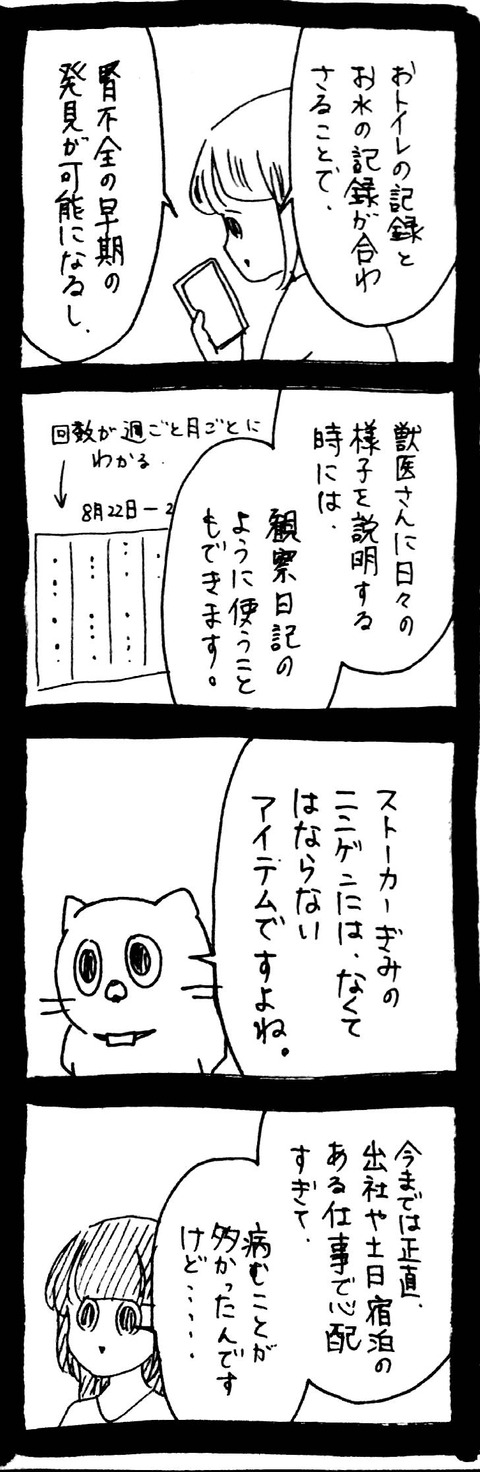 おトイレの記録と
お水の記録が合わ
さることで、
腎不全の早期の
発見が可能になるし、
獣医さんに日々の
様子を説明する
時には、
観察日記の
ように使うこと
もできます。
回数が週ごと月ごとに
わかる
8月22日ー2
ストーカーぎみの
ニンゲンには、なくて
はならない
アイテムですよね。
今までは正直、
出社や土日宿泊の
ある仕事で心配
すぎて、
病むことが
多かったんです
けど……